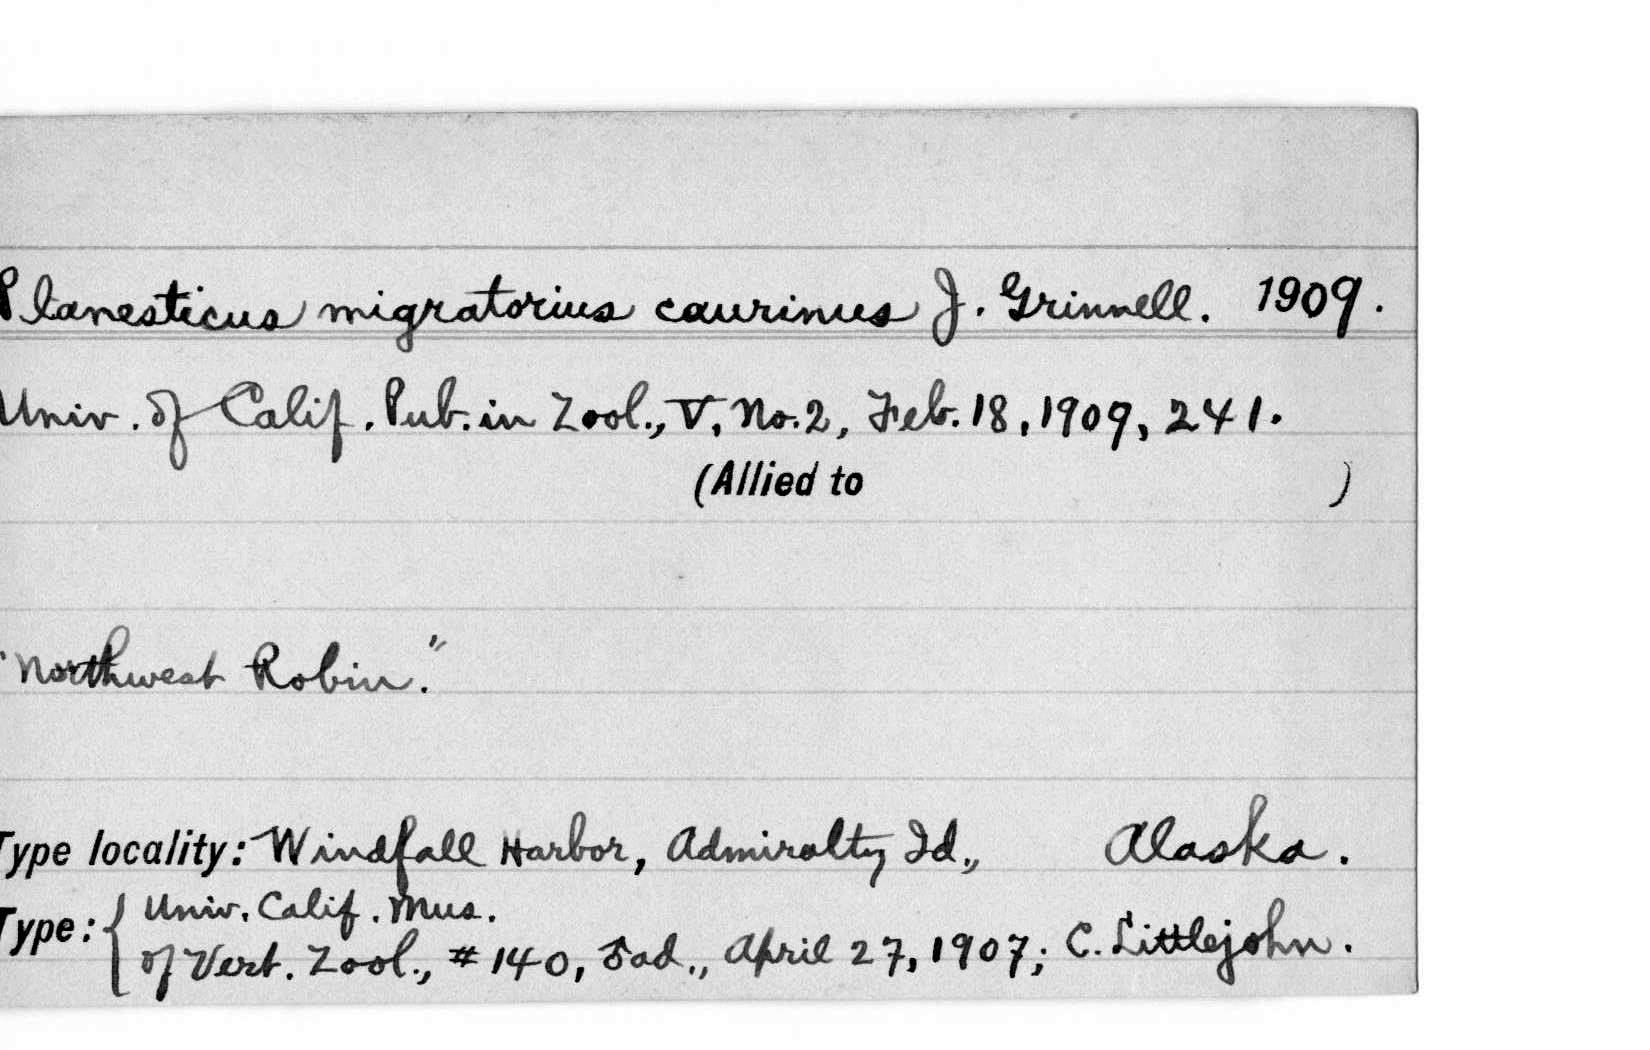 Planesticus migratorius caurinus J. Grinnell. 1909.
Univ. of Calif. Pub. in Zool., V, No. 2, Feb. 18, 1909, 241.
(Allied to )
"Northwest Robin."
Type locality: Windfall Harbor, Admiralty Id., Alaska.
Type: { Univ. Calif. Mus.
of Vert. Zool., # 140, ♂ad., April 27, 1907; C. Littlejohn.